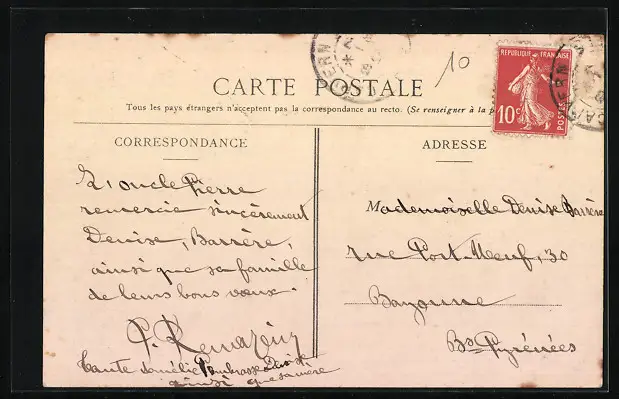 10
CARTE POSTALE
Tous les pays étrangers n'acceptent pas la correspondance au recto. (Se renseigner à la p
REPUBLIQUE FRANÇAISE
10c
POSTES
CORRESPONDANCE
L'oncle Pierre
remercie sincèrement
Denise, Barrère,
ainsi que sa famille
de leurs bons vœux.
P.
tante
ainsi que sa mère
ADRESSE
Mademoiselle Denise Barrère
rue Port-Neuf, 30
Bayonne
Bses Pyrénées